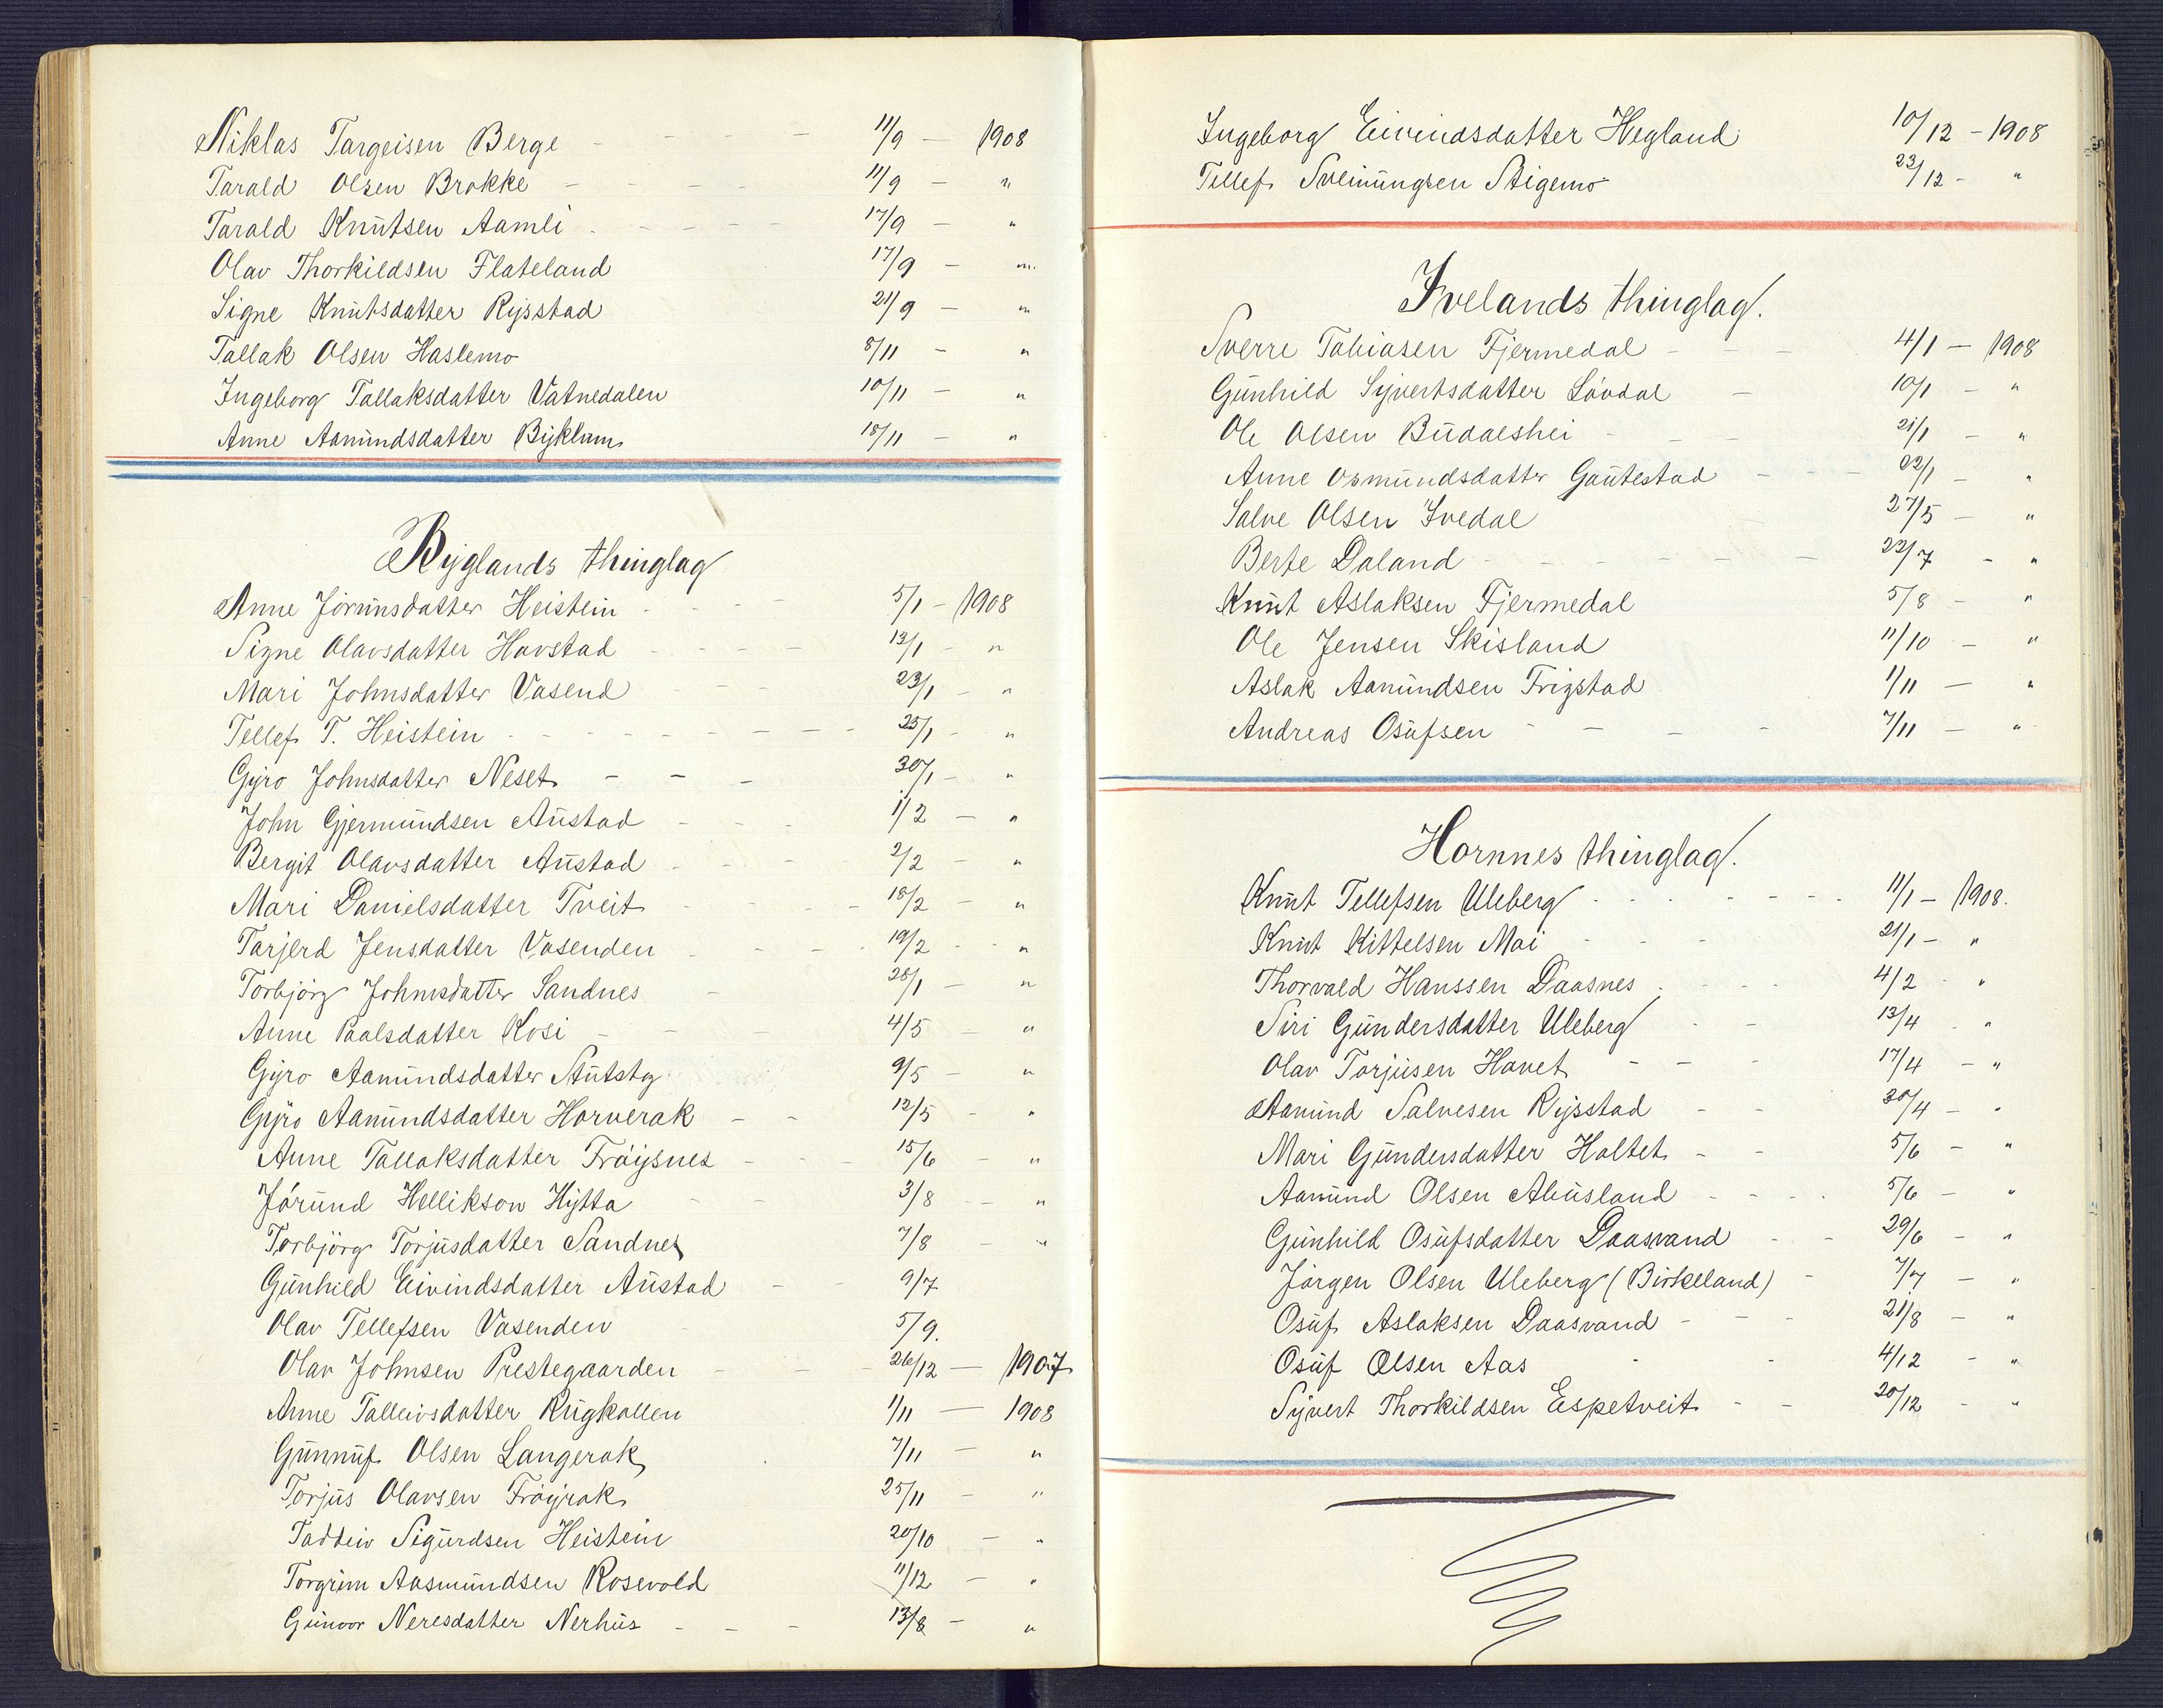 Niklas Targeisen Berge - - - - 11/9 - 1908
Tarald Olsen Brokke - - - - 11/9 - "
Tarald Knutsen Aamli - - - - 17/9 - "
Olav Thorkildsen Flateland 17/9 - "
Signe Knutsdatter Rysstad 21/9 - "
Tallak Olsen Haslemo 8/11 - "
Ingeborg Tallaksdatter Vatnedalen 10/11 - "
Anne Aamundsdatter Byklum 18/11 - "
Byglands thinglag
Anne Jörunsdatter Heistein - - - 5/1 - 1908
Signe Olavsdatter Havstad - - - 13/1 - "
Mari Johnsdatter Vasend - - - 23/1 - "
Tellef T. Heistein - - - - 25/1 - "
Gyro Johnsdatter Neset - - - 30/1 - "
John Gjermundsen Austad - - - 1/2 - "
Bergit Olavsdatter Austad - - - 2/2 - "
Mari Danielsdatter Tveit - - - 18/2 - "
Tarjerd Jensdatter Vasenden - - - 19/2 - "
Torbjörg Johnsdatter Sandnes - 28/1 - "
Anne Paalsdatter Kosi - - - 4/5 - "
Gyro Aamundsdatter Stutsty 9/5 - "
Gyro Aamundsdatter Horverak - - 12/5 - "
Anne Tallaksdatter Fröysnes - - - 15/6 - "
Jörund Hellikson Hytta - - 3/8 - "
Torbjörg Torjusdatter Sandnes 7/8 - "
Gunhild Eivindsdatter Austad - - 9/7
Olav Tellefsen Vasenden - 5/9.
Olav Johnsen Prestegaarden - - - 26/12 - 1907
Anne Talleivsdatter Rugkallen 1/11 - 1908
Gunnuf Olsen Langerak 7/11 - "
Torjus Olavsen Fröyrak 25/11 - "
Taddeiv Sigurdsen Heistein 20/10 - "
Torgrim Aasmundsen Rosevold 11/12 - "
Gunvor Neresdatter Nerhus - - - 13/8 - "
Ingeborg Eivindsdatter Hegland 10/12 - 1908
Tellef Sveinungsen Stigemo 23/12 - "
Ivelands thinglag.
Sverre Tobiasen Fjermedal - - - 4/1 - 1908
Gunhild Syvertsdatter Lövdal - 10/1 - "
Ole Olsen Budalshei - - - 21/1 - "
Anne Osmundsdatter Gautestad - - - 22/1 - "
Salve Olsen Ivedal 27/5 - "
Berte Daland - - - - - 22/7 - "
Knut Aslaksen Fjermedal 5/8 - "
Ole Jensen Skisland 11/10 - "
Aslak Aamundsen Frigstad 1/11 - "
Andreas Osufsen - - - - 7/11 - "
Hornnes thinglag.
Knut Tellefsen Uleberg - - - - - 11/1 - 1908.
Knut Kittelsen Moi - - - 21/1 - "
Thorvald Hanssen Daasnes - - - 4/2 - "
Siri Gundersdatter Uleberg - - 13/4 - "
Olav Torjusen Havet - - - 17/4 - "
Aamund Salvesen Rysstad - - 30/4 - "
Mari Gundersdatter Holtet - - 5/6 - "
Aamund Olsen Abusland - - - 5/6 - "
Gunhild Osufsdatter Daasvand - - 29/6 - "
Jörgen Olsen Uleberg (Birkeland) - 7/7 - "
Osuf Aslaksen Daasvand - - - 21/8 - "
Osuf Olsen Aas - - 4/12 - "
Syvert Thorkildsen Espetveit - - 20/12 - "